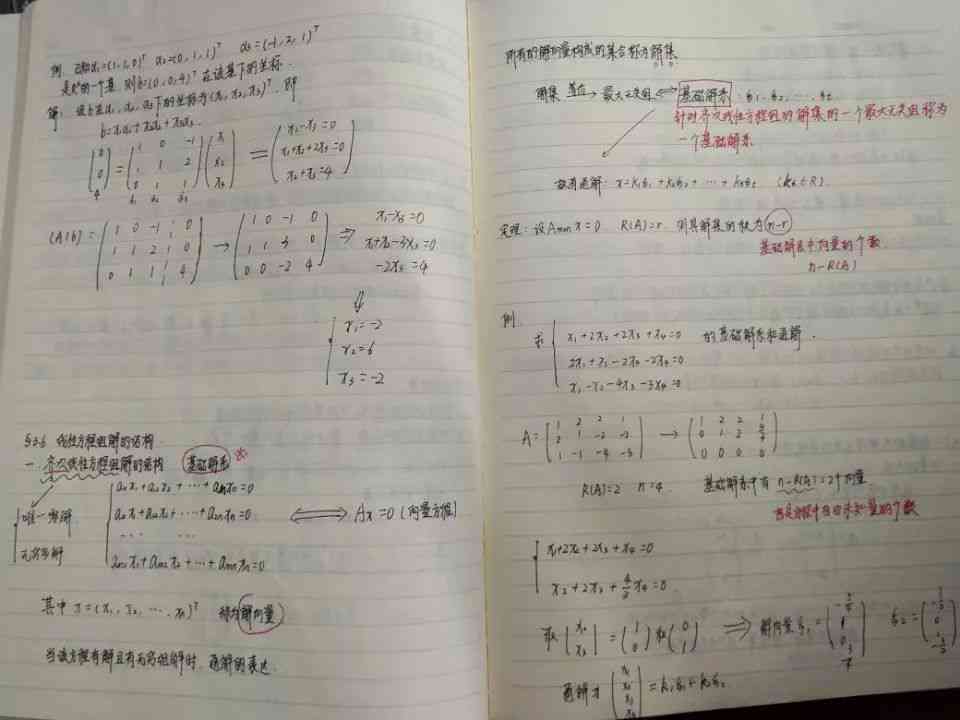 例. 已知α₁=(1,1,0)ᵀ α₂=(0,1,1)ᵀ α₃=(-1,2,1)ᵀ
是R³的一个基. 则b=(0,0,4)ᵀ在该基下的坐标.
解: 设b在α₁,α₂,α₃下的坐标为(x₁,x₂,x₃)ᵀ. 即
b=x₁α₁+x₂α₂+x₃α₃.
(0 0 4) = (1 0 -1; 1 1 2; 0 1 1)(x₁ x₂ x₃) = (x₁-x₃=0; x₁+x₂+2x₃=0; x₂+x₃=4)
(A|b)=(1 0 -1 0; 1 1 2 0; 0 1 1 4) → (1 0 -1 0; 1 1 3 0; 0 0 -2 4) ⇒ x₁-x₃=0
x₁+x₂-3x₃=0
-2x₃=4
⇓
x₁=-2
x₂=6
x₃=-2
§3.6 线性方程组解的结构
一. 齐次线性方程组解的结构 基础解系 ※
唯一零解
无穷多解
a₁₁x₁+a₁₂x₂+⋯+a₁ₙxₙ=0
a₂₁x₁+a₂₂x₂+⋯+a₂ₙxₙ=0
⋯ ⋯
aₘ₁x₁+aₘ₂x₂+⋯+aₘₙxₙ=0
⟺ Ax=0(向量方程)
其中 x=(x₁,x₂,⋯,xₙ)ᵀ 称为解向量
当该方程有解且有无穷组解时. 通解的表达.
所有的解向量构成的集合称为解集
解集 → 最大无关组 ⟺ 基础解系: ξ₁,ξ₂,⋯,ξₜ
针对齐次线性方程组的解集的一个最大无关组称为
一个基础解系
故有通解: x=k₁ξ₁+k₂ξ₂+⋯+kₜξₜ (kₜ∈R)
定理: 设Aₘₓₙx=0 R(A)=r. 则其解集的秩为n-r
基础解系中向量的个数
n-R(A)
例.
求
x₁+2x₂+2x₃+x₄=0 的基础解系和通解.
2x₁+x₂-2x₃-2x₄=0
x₁-x₂-4x₃-3x₄=0
A=(1 2 2 1; 2 1 -2 -2; 1 -1 -4 -3) → (1 2 2 1; 0 1 2 4/3; 0 0 0 0)
R(A)=2 n=4. 基础解系中有n-R(A)=2个向量.
也是方程中自由未知量的个数
x₁+2x₂+2x₃+x₄=0
x₂+2x₃+4/3x₄=0
⇒ 解向量ξ₁= ξ₂=
通解为(x₁ x₂ x₃ x₄)=k₁ξ₁+k₂ξ₂